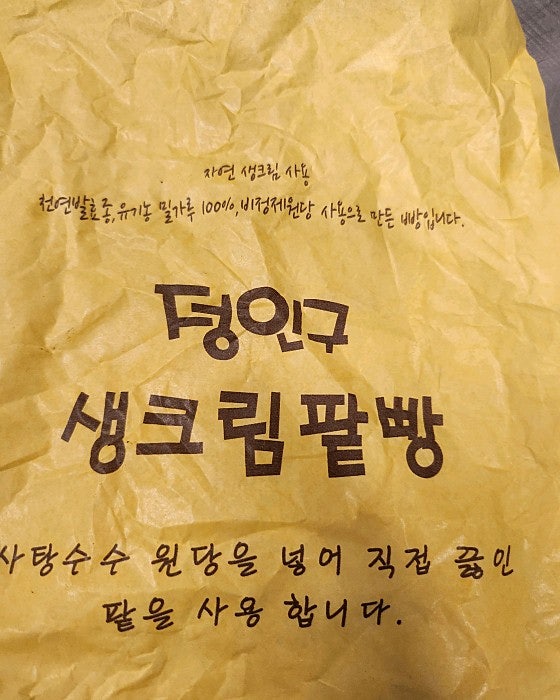 자연 생크림 사용
천연발효종, 유기농 밀가루 100%, 비정제원당 사용으로 만든 빵입니다.
정인구
생크림팥빵
사탕수수 원당을 넣어 직접 끓인
팥을 사용 합니다.